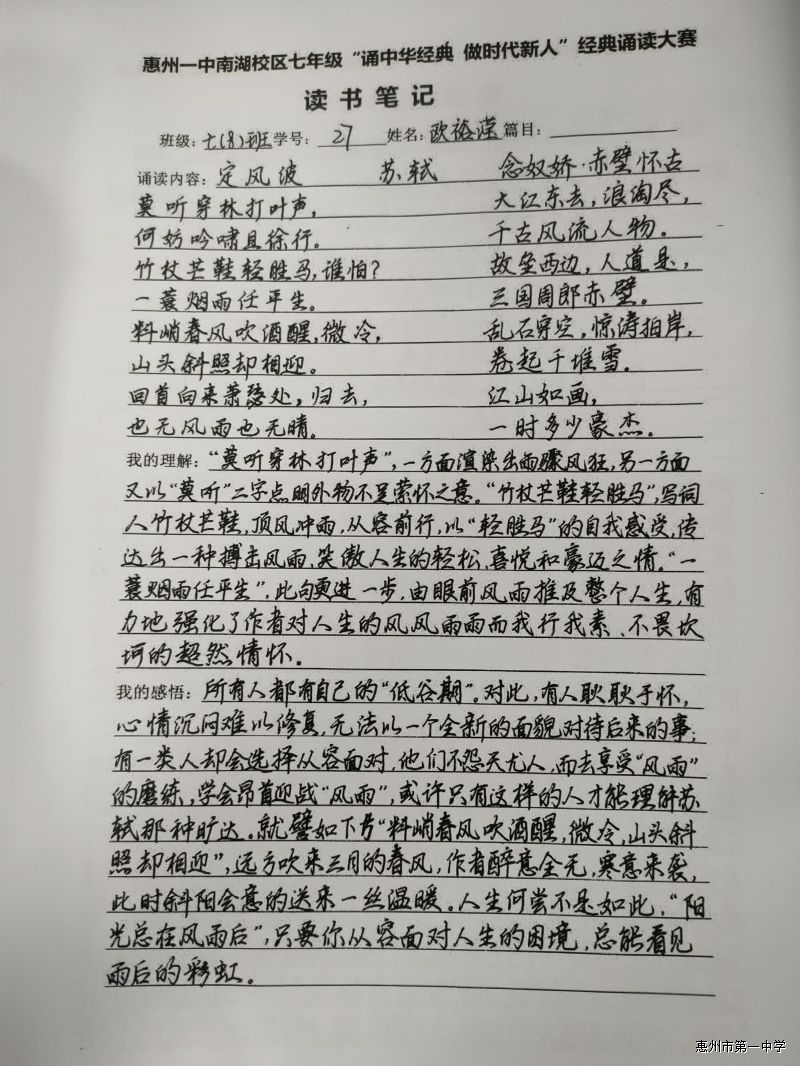 惠州一中南湖校区七年级“诵中华经典 做时代新人”经典诵读大赛
读书笔记
班级：七(8)班 学号：27 姓名：欧裕滢 篇目：
诵读内容：定风波 苏轼 念奴娇·赤壁怀古
莫听穿林打叶声， 大江东去，浪淘尽，
何妨吟啸且徐行。 千古风流人物。
竹杖芒鞋轻胜马，谁怕？ 故垒西边，人道是，
一蓑烟雨任平生。 三国周郎赤壁。
料峭春风吹酒醒，微冷， 乱石穿空，惊涛拍岸，
山头斜照却相迎。 卷起千堆雪。
回首向来萧瑟处，归去， 江山如画，
也无风雨也无晴。 一时多少豪杰。
我的理解：“莫听穿林打叶声”，一方面渲染出雨骤风狂，另一方面
又以“莫听”二字点明外物不足萦怀之意。“竹杖芒鞋轻胜马”，写词
人竹杖芒鞋，顶风冲雨，从容前行，以“轻胜马”的自我感受，传
达出一种搏击风雨、笑傲人生的轻松、喜悦和豪迈之情。“一
蓑烟雨任平生”，此句更进一步，由眼前风雨推及整个人生，有
力地强化了作者对人生的风风雨雨而我行我素、不畏坎
坷的超然情怀。
我的感悟：所有人都有自己的“低谷期”。对此，有人耿耿于怀，
心情沉闷难以修复，无法以一个全新的面貌对待后来的事；
有一类人却会选择从容面对，他们不怨天尤人，而去享受“风雨”
的磨练，学会昂首迎战“风雨”，或许只有这样的人才能理解苏
轼那种旷达。就譬如下片“料峭春风吹酒醒，微冷，山头斜
照却相迎”，远方吹来三月的春风，作者醉意全无，寒意来袭，
此时斜阳会意的送来一丝温暖。人生何尝不是如此，“阳
光总在风雨后”，只要你从容面对人生的困境，总能看见
雨后的彩虹。
惠州市第一中学